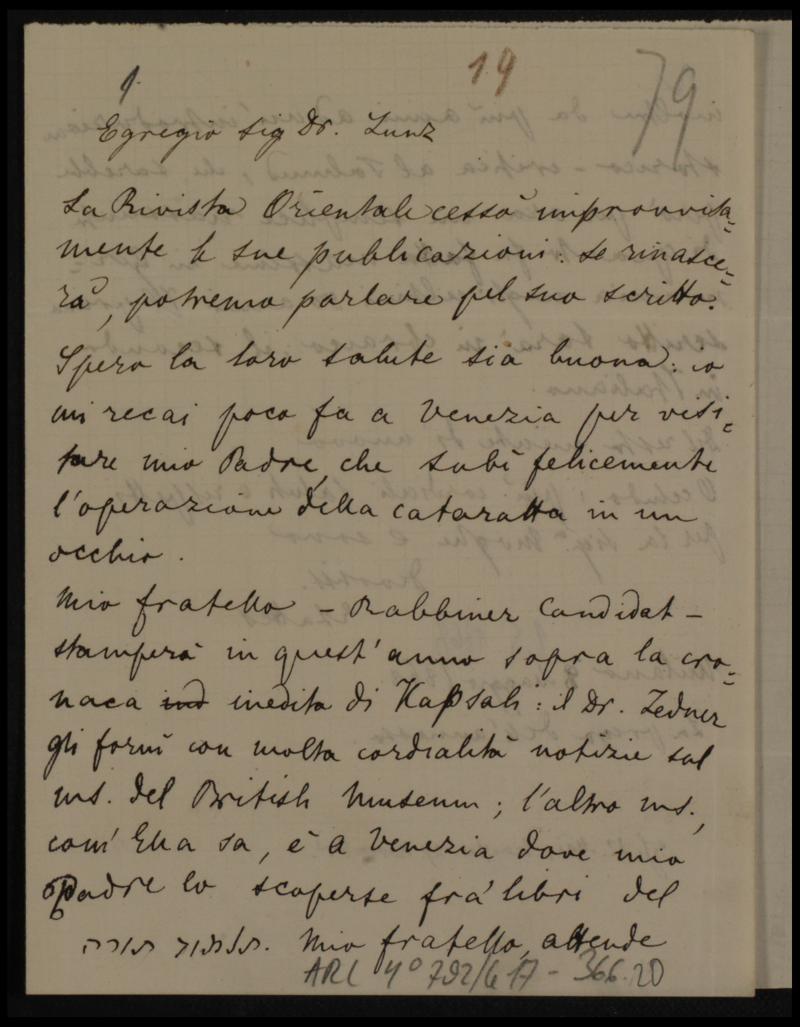 1.
19
79
Egregio Sig Dr. Zunz
La Rivista Orientale cessò improvvisa=
mente le sue publicazioni: se rinasce=
rà, potremo parlare pel suo scritto.
Spero la loro salute sia buona: io
mi recai poco fa a Venezia per visi=
tare mio Padre, che subì felicemente
l'operazione della cataratta in un
occhio.
Mio fratello – Rabbiner Candidat –
stamperà in quest'anno sopra la cro=
naca ind inedita di Kapsali: il Dr. Zedner
gli fornì con molta cordialità notizie sul
ms. del British Museum; l'altro ms.,
com' Ella sa, è a Venezia dove mio
Padre lo scoperse frà libri del
תלמוד תורה. Mio fratello, attende
ARC 4° 792/G 17 - 366.20